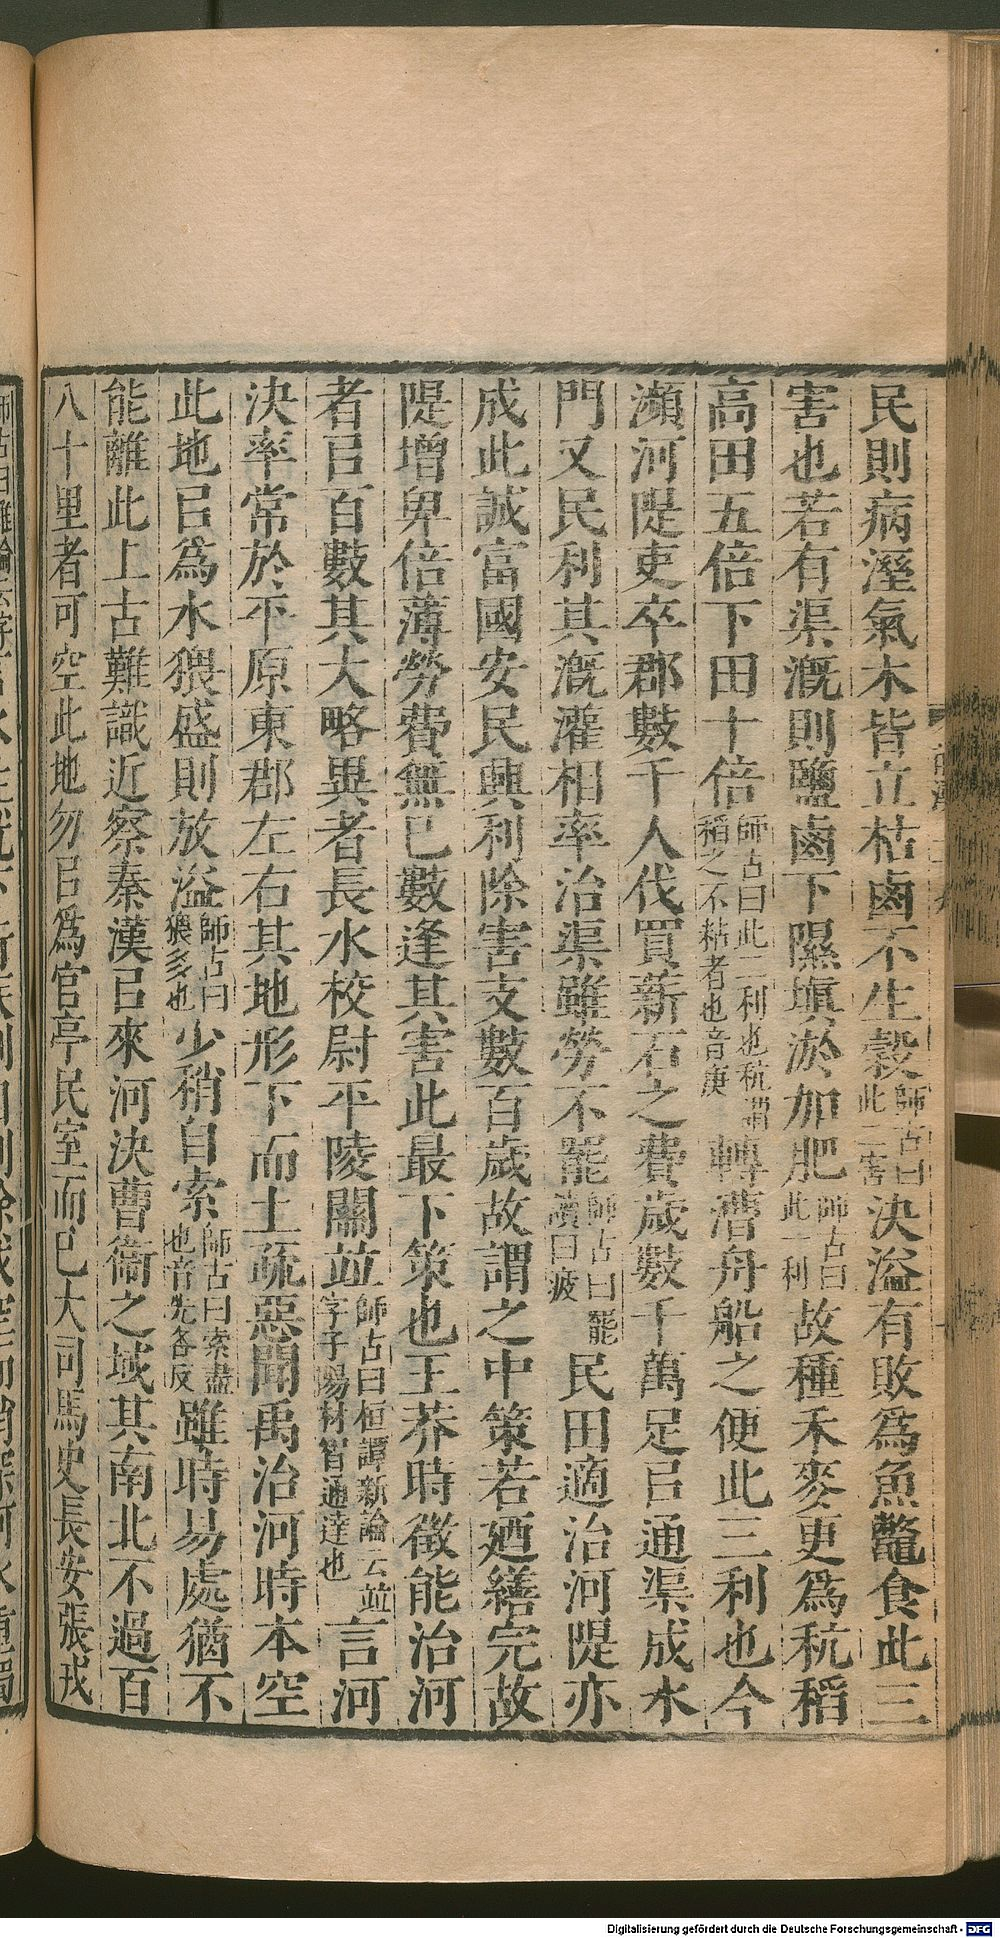 民則病溼氣木皆立枯鹵不生穀師古曰此二害決溢有敗爲魚鼈食此三
害也若有渠漑則鹽鹵下隰塡淤加肥師古曰此一利故種禾麥更爲秔稻
高田五倍下田十倍師古曰此二利也秔謂稻之不粘者也音庚轉漕舟船之便此三利也今
瀕河隄吏卒郡數千人伐買薪石之費歲數千萬足㠯通渠成水
門又民利其漑灌相率治渠雖勞不罷師古曰罷讀曰疲民田適治河隄亦
成此誠富國安民興利除害支數百歲故謂之中策若廼繕完故
隄增卑倍薄勞費無已數逢其害此最下策也王莽時徵能治河
者㠯百數其大略異者長水校尉平陵關竝師古曰桓譚新論云竝字子陽材智通達也言河
決率常於平原東郡左右其地形下而土疏惡聞禹治河時本空
此地㠯爲水猥盛則放溢師古曰猥多也少稍自索師古曰索盡也音先各反雖時易處猶不
能離此上古難識近察秦漢㠯來河決曹衞之域其南北不過百
八十里者可空此地勿㠯爲官亭民室而已大司馬史長安張戎
Digitalisierung gefördert durch die Deutsche Forschungsgemeinschaft - DFG